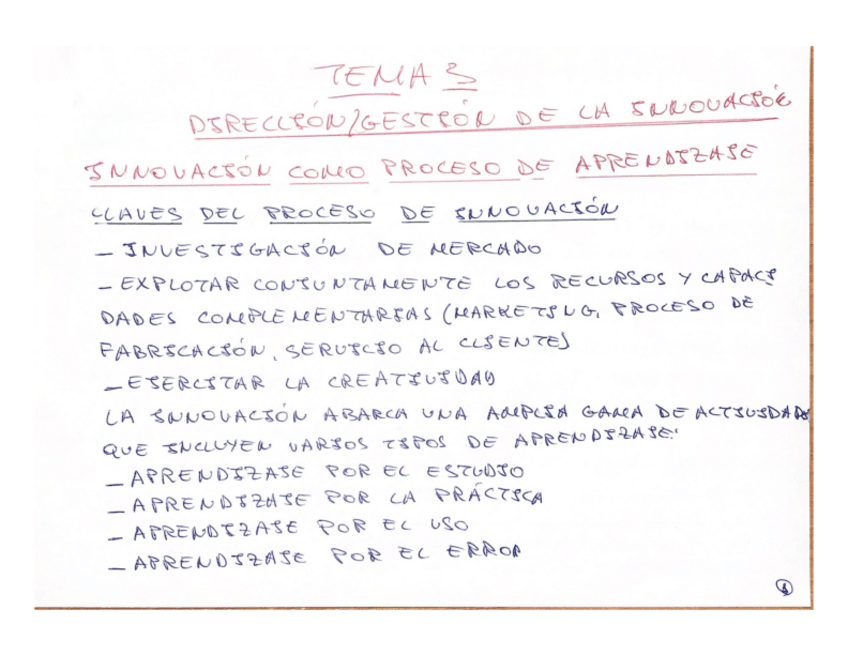 TEMA 3
DIRECCIÓN/GESTIÓN DE LA INNOVACIÓN
INNOVACIÓN COMO PROCESO DE APRENDIZAJE
CLAVES DEL PROCESO DE INNOVACIÓN
- INVESTIGACIÓN DE MERCADO
- EXPLOTAR CONJUNTAMENTE LOS RECURSOS Y CAPACI
DADES COMPLEMENTARIAS (MARKETING, PROCESO DE
FABRICACIÓN, SERVICIO AL CLIENTE)
- EJERCITAR LA CREATIVIDAD
LA INNOVACIÓN ABARCA UNA AMPLIA GAMA DE ACTIVIDADES
QUE INCLUYEN VARIOS TIPOS DE APRENDIZAJE:
- APRENDIZAJE POR EL ESTUDIO
- APRENDIZAJE POR LA PRÁCTICA
- APRENDIZAJE POR EL USO
- APRENDIZAJE POR EL ERROR
1